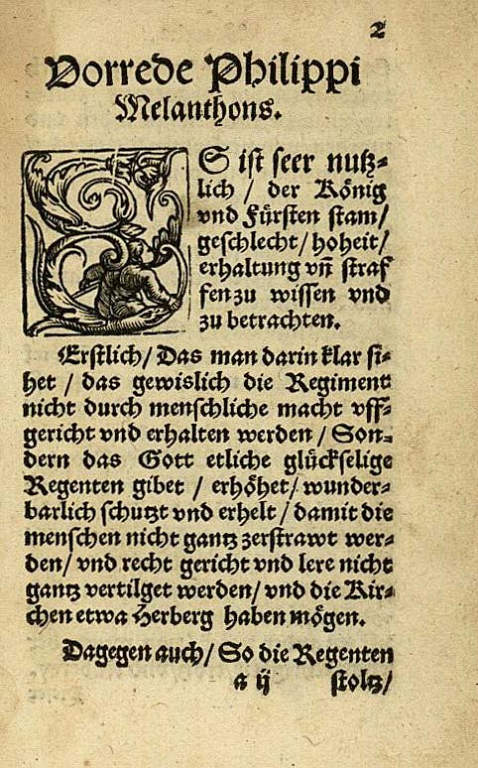 2
Vorrede Philippi
Melanthons.
ES ist seer nutz⸗
lich / der König
vnd Fürsten stam /
geschlecht / hoheit /
erhaltung vn̄ straf
fen zu wissen vnd
zu betrachten.
Erstlich / Das man darin klar si⸗
het / das gewislich die Regiment
nicht durch menschliche macht vff⸗
gericht vnd erhalten werden / Son⸗
dern das Gott etliche glückselige
Regenten gibet / erhöhet / wunder⸗
barlich schutzt vnd erhelt / damit die
menschen nicht gantz zerstrawt wer⸗
den / vnd recht gericht vnd lere nicht
gantz vertilget werden / vnd die Kir⸗
chen etwa Herberg haben mögen.
Dagegen auch / So die Regenten
a ij stoltz /